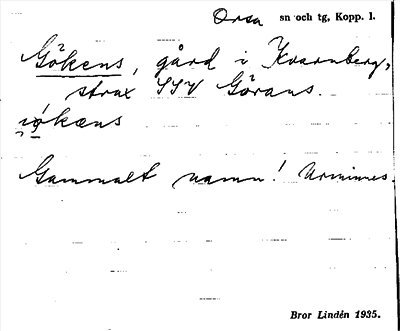 Orsa sn och tg, Kopp. l.
Gökens, gård i Kvarnberg,
strax SSV Görans.
jøkæns
Gammalt namn! Urminnes
Bror Lindén 1935.